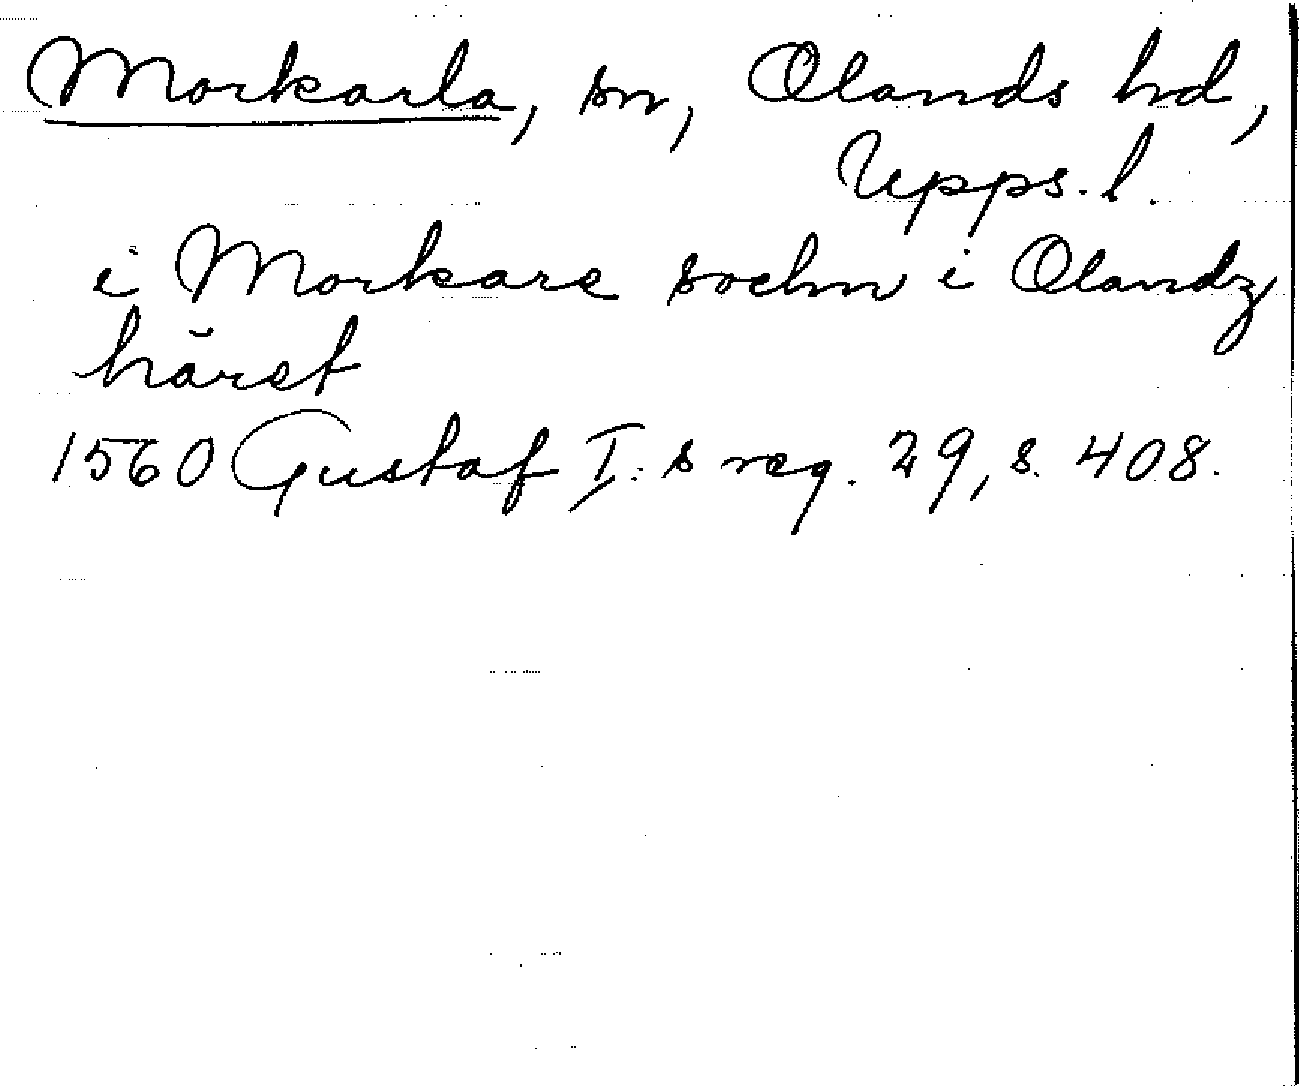 Morkarla, sn, Olands hd,
Upps. l.
i Morkare sochn i Olandz
häret
1560 Gustaf I:s reg. 29, s. 408.